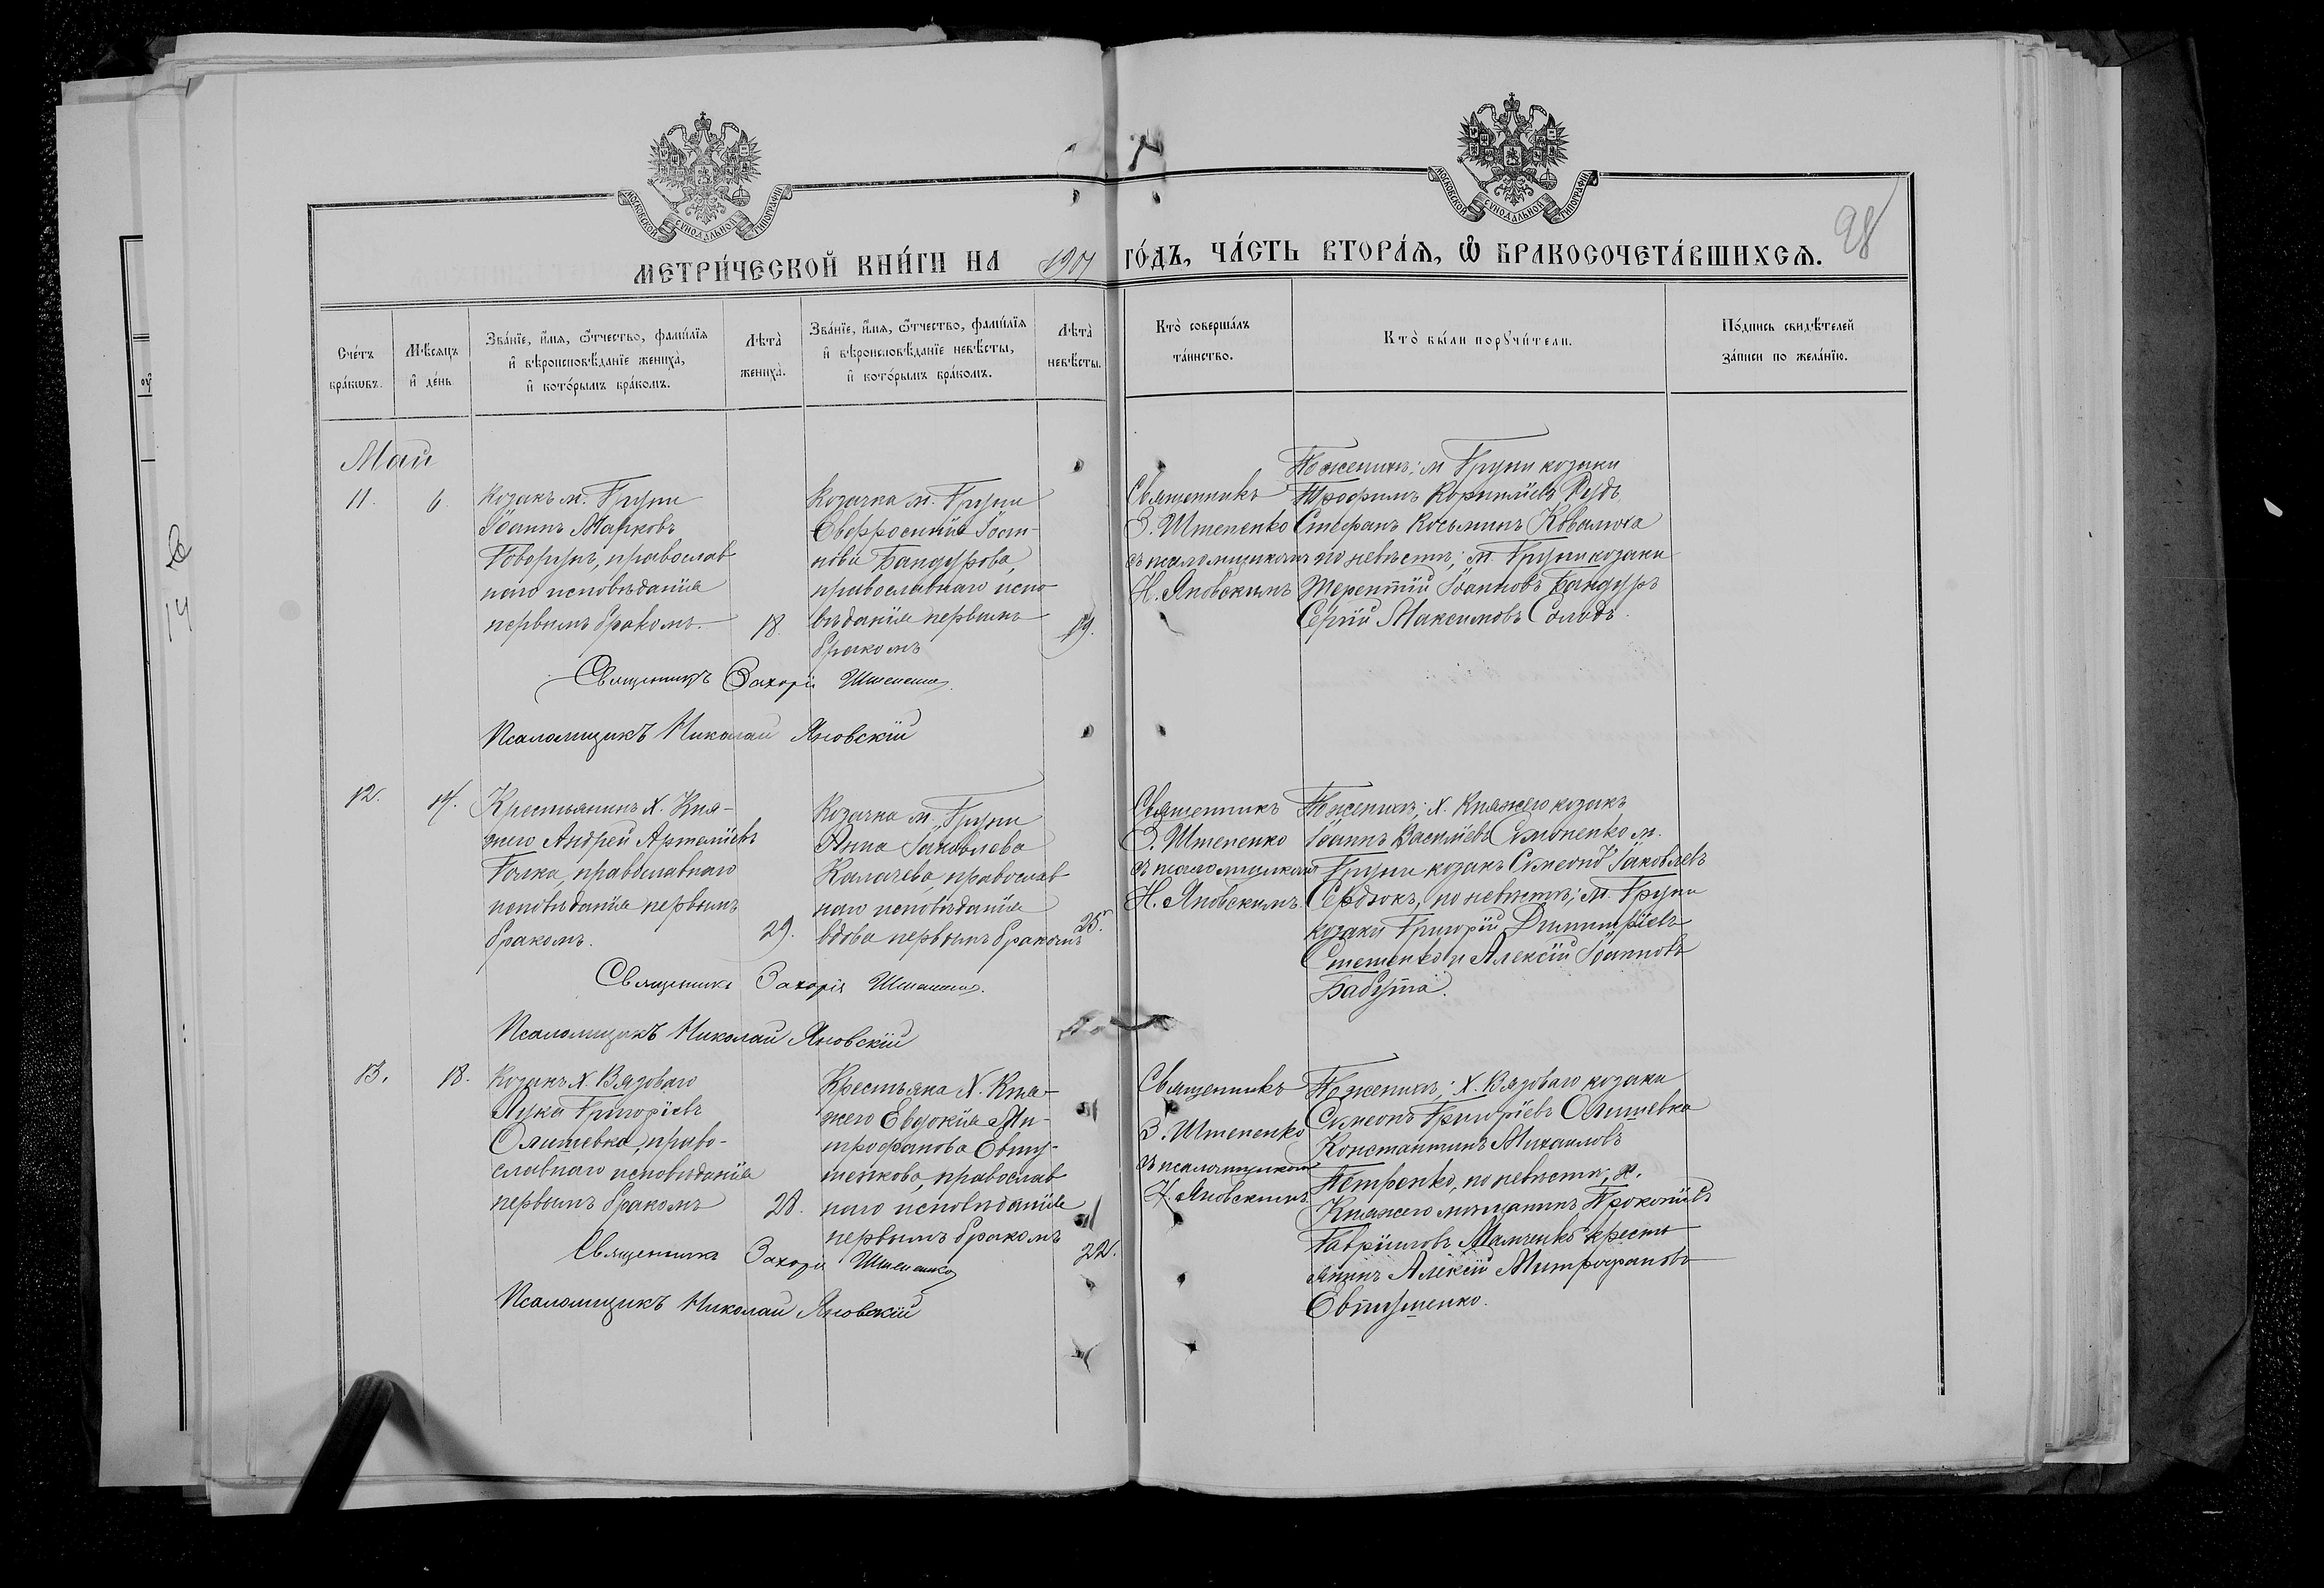 МОСКОВСКОЙ СѴНОДАЛЬНОЙ ТИПОГРАФІИ
МОСКОВСКОЙ СѴНОДАЛЬНОЙ ТИПОГРАФІИ
98
МЕТРИ́ЧЕСКОЙ КНИ́ГИ НА 1907 ГО́ДЪ, ЧА́СТЬ ВТОРА́Я, Ѽ БРАКОСОЧЕТА́ВШИХСѦ.
Сче́тъ
бра́кѡвъ.
Мѣ́сяцъ
и҆ де́нь
Зва́нїе, и҆́мя, ѻ҆́тчество, фами́лїя
и҆ вѣроисповѣ́данїе жениха̀,
и҆ кото́рымъ бра́комъ.
Лѣ́та̀
жениха̀.
Зва́нїе, и҆́мя, ѻ҆́тчество, фами́лїя
и҆ вѣроисповѣ́данїе невѣ́сты,
и҆ кото́рымъ бра́комъ.
Лѣ́та̀
невѣ́сты.
Кто̀ соверша́лъ
та́инство.
Кто̀ бы́ли порꙋчи́тели.
По́дпись свидѣ́телей
за́писи по жела́нїю.
Май
11.
6
Козакъ м. Груни
Іоаннъ Марковъ
Говорунъ, православ
наго исповѣданія
первымъ бракомъ.
18.
Козачка м. Груни
Евфросинія Іоан-
нова Бандурова,
православнаго испо
вѣданія первымъ
бракомъ
19.
Священникъ
З. Штепенко
съ псаломщикомъ
Н. Яновскимъ
По женихѣ; м. Груни козаки
Трофимъ Корнилїевъ Рудь
Стефанъ Косьминъ Ковалюха
по невѣстѣ; м. Груни козаки
Терентій Іоанновъ Бандуръ
Сергій Максимовъ Солодъ.
Священникъ Захарій Штепенко
Псаломщикъ Николай Яновскій
12.
14.
Крестьянинъ х. Кня-
жего Андрей Артемїевъ
Голка, православнаго
исповѣданія первымъ
бракомъ.
29.
Козачка м. Груни
Анна Іаковлева
Калачева, православ
наго исповѣданія
вдова первымъ бракомъ
25.
Священникъ
З. Штепенко
съ псаломщикомъ
Н. Яновскимъ.
По женихѣ; х. Княжего козакъ
Іоаннъ Василїевъ Симоненко м.
Груни козакъ Симеонъ Іаковлевъ
Сердюкъ, по невѣстѣ; м. Груни
козаки Григорій Димитріевъ
Стеценко и Алексій Іоанновъ
Бабута.
Священникъ Захарія Штепенко.
Псаломщикъ Николай Яновскій
13.
18.
Козакъ х. Вязоваго
Лука Григорїевъ
Олишевка, право-
славнаго исповѣданія
первымъ бракомъ
28.
Крестьяка х. Кня-
жего Евдокія Ми-
трофанова Евту-
шенкова, православ
наго исповѣданія
первымъ бракомъ
22.
Священникъ
З. Штепенко
съ псаломщикомъ
Н. Яновскимъ.
По женихѣ; х. Вязоваго козаки
Симеонъ Григорїевъ Олишевка
Константинъ Михаиловъ
Петренко, по невѣстѣ; х.
Княжего мѣщанинъ Прокопій
Гавріиловъ Малченко кресть
янинъ Алексій Митрофановъ
Евтушенко.
Священникъ Захарій Штепенко
Псаломщикъ Николай Яновскій
14